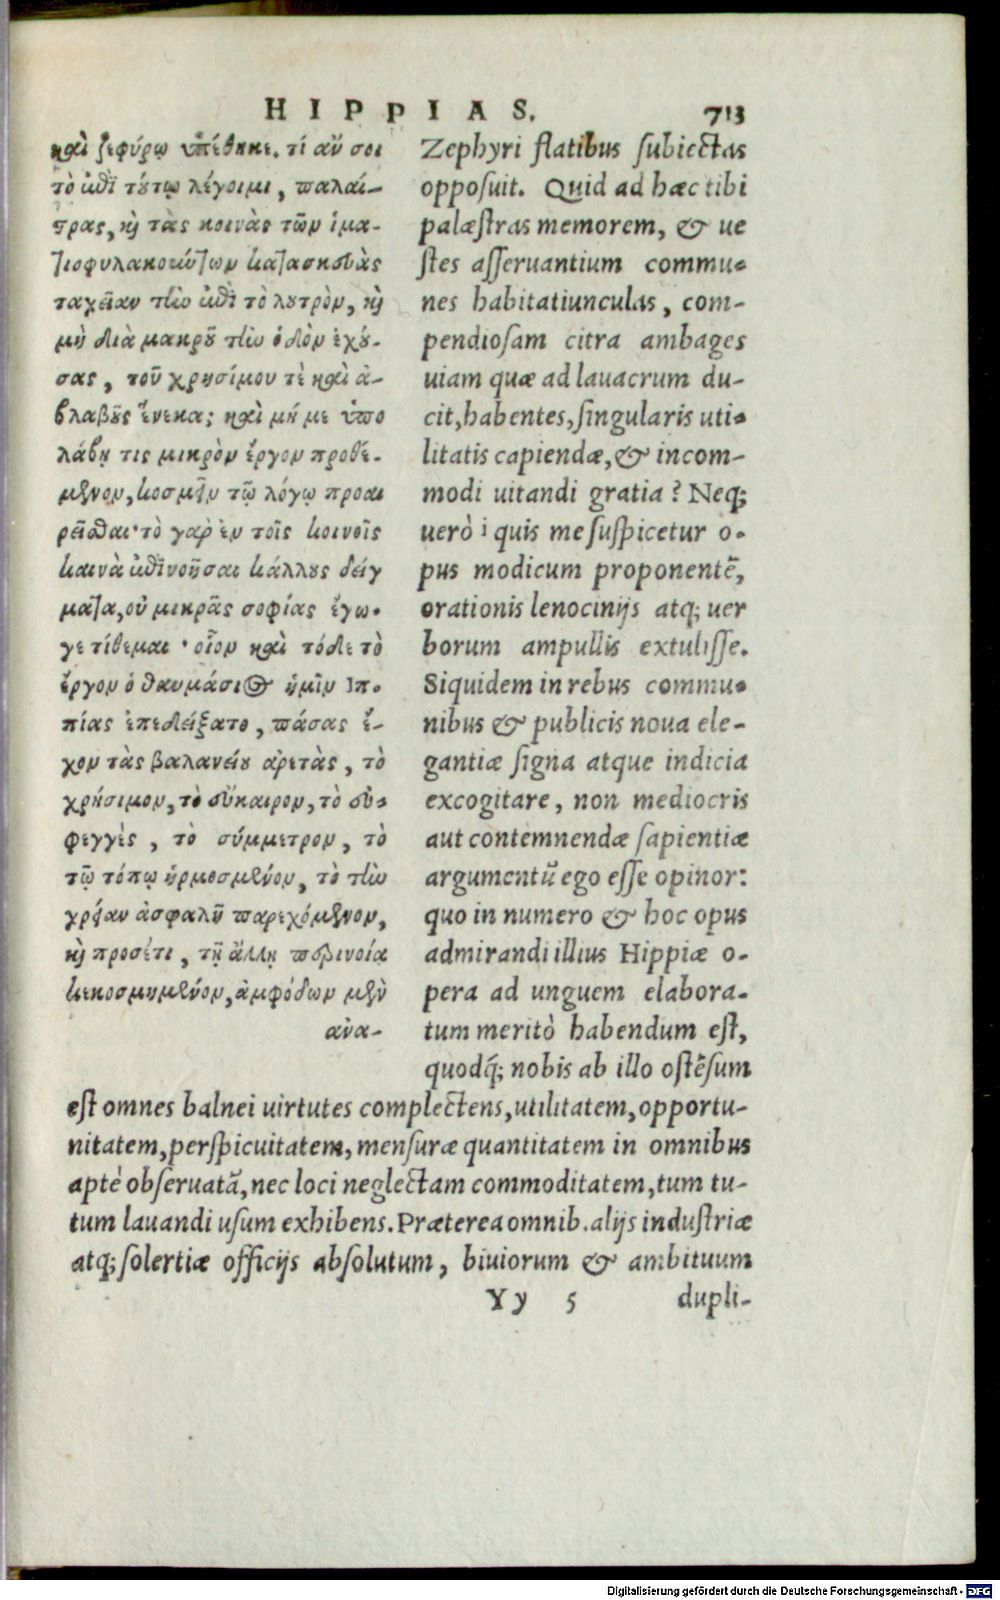 HIPPIAS. 713
καὶ ζεφύρῳ ὑπέθηκε. τί ἄν σοι
τὸ ἐπὶ τούτῳ λέγοιμι, παλαί-
στρας, καὶ τὰς κοινὰς τῶν ἱμα-
τιοφυλακούντων κατασκευὰς
ταχεῖαν τὴν ἐπὶ τὸ λουτρὸν, καὶ
μὴ διὰ μακροῦ τὴν ὁδὸν ἐχού-
σας, τοῦ χρησίμου τὲ καὶ ἀ-
βλαβοῦς ἕνεκα; καὶ μή με ὑπο
λάβῃ τις μικρὸν ἔργον προθέ-
μενον, κοσμεῖν τῷ λόγῳ προαι
ρεῖσθαι· τὸ γὰρ ἐν τοῖς κοινοῖς
καινὰ ἐπινοῆσαι κάλλους δείγ
ματα, οὐ μικρᾶς σοφίας ἔγω-
γε τίθεμαι · οἷον καὶ τόδε τὸ
ἔργον ὁ θαυμάσιος ἡμῖν Ἱπ-
πίας ἐπεδείξατο, πάσας ἔ-
χον τὰς βαλανείου ἀρετὰς, τὸ
χρήσιμον, τὸ εὔκαιρον, τὸ εὐ-
φεγγὲς, τὸ σύμμετρον, τὸ
τῷ τόπῳ ἡρμοσμένον, τὸ τὴν
χρείαν ἀσφαλῆ παρεχόμενον,
καὶ προσέτι, τῇ ἄλλῃ περινοίᾳ
κεκοσμημένον, ἀμφόδων μὲν
ἀνα-
Zephyri flatibus subiectas
opposuit. Quid ad hæc tibi
palæstras memorem, & ue
stes asseruantium commu-
nes habitatiunculas, com-
pendiosam citra ambages
uiam quæ ad lauacrum du-
cit, habentes, singularis uti-
litatis capiendæ, & incom-
modi uitandi gratia? Neq;
uerò i quis me suspicetur o-
pus modicum proponentē,
orationis lenocinijs atq; uer
borum ampullis extulisse.
Siquidem in rebus commu-
nibus & publicis noua ele-
gantiæ signa atque indicia
excogitare, non mediocris
aut contemnendæ sapientiæ
argumentū ego esse opinor:
quo in numero & hoc opus
admirandi illius Hippiæ o-
pera ad unguem elabora-
tum meritò habendum est,
quodq́; nobis ab illo ostēsum
est omnes balnei uirtutes complectens, utilitatem, opportu-
nitatem, perspicuitatem, mensuræ quantitatem in omnibus
aptè obseruatā, nec loci neglectam commoditatem, tum tu-
tum lauandi usum exhibens. Præterea omnib. alijs industriæ
atq; solertiæ officijs absolutum, biuiorum & ambituum
Yy 5 dupli-
Digitalisierung gefördert durch die Deutsche Forschungsgemeinschaft - DFG